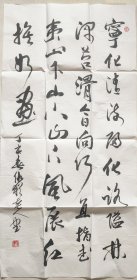 寧化清流归化路隘林
深苔滑今日向何方直指武
夷山下山下山下風展红
旗如画